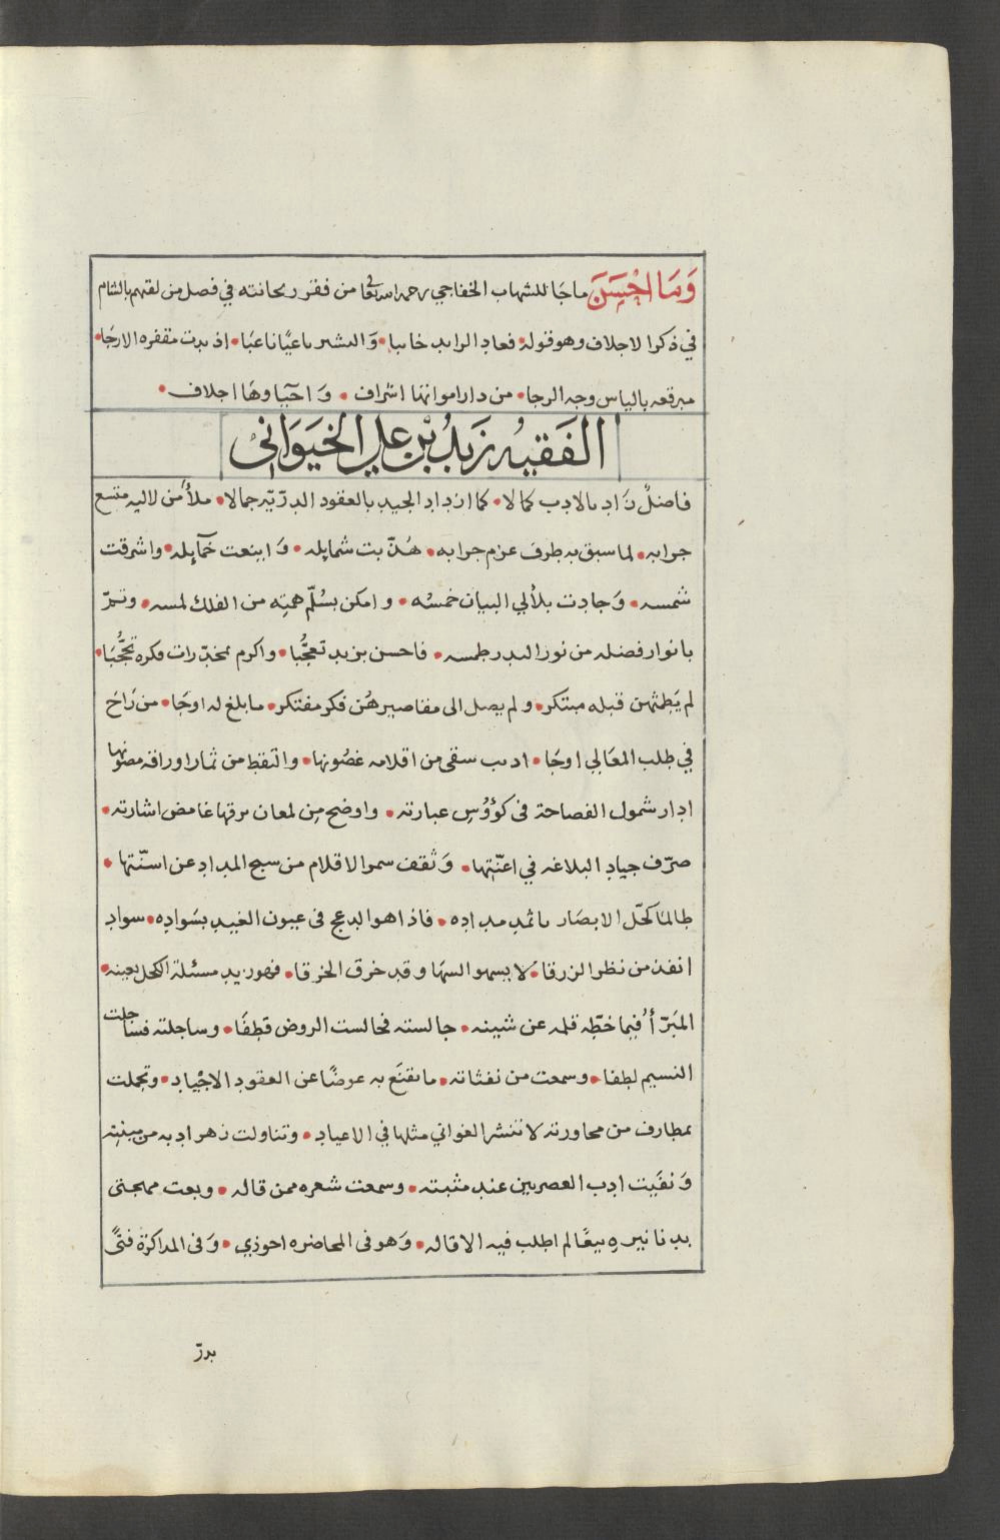 وَمَا احْسَنَ ماجَا للشهاب الخفاجي رحمه الله تعالى من فقر ريحانته في فصل من لقيهم بالشام
في ذكر الاجلاف وهو قوله • فعاد الرايد خايبا • وَالبشر باعيًا ناعبًا • اذ بدت مقفره الارجَا •
مبرقعه بالياس وجه الرجا • من دار امواتها اشراف • وَ احيَاوهَا اجلاف •
الفَقيهُ زَيدُ بْن عَلي الخيوَانىُ
فاضلٌ زَاد بالادب كمالا • كما ازداد الجيد بالعقود الدرّيّه جمالا • ملأ من لاليه متسع
جرابه • لما سبق به طرف عزم جرا به • هُذّبت شمايله • وَ اينعت خمآيله • واشرقت
شمسه • وَجادت بلألي البيان خمسُه • و امكن بسُلّم همتِه من الفلك لمسه • وتمّ
بانوار فضله من نور البدر طمسه • فاحسن بزيد تعجُّبا • واكرم بمخدّرات فكره تحجُّبَا •
لم يَطمثهن قبله مبتكر • و لم يصل الى مقاصيرهُن فكر مفتكر • ما بلغ له اوجَا • من رَاحَ
في طلب المعَالي اوجَا • ادىب سقى من اقلامه غصُونها • والتقط من ثمار اوراقه مصونها
ادار شمول الفصاحة فى كؤوُس عبارته • واوضح مِن لمعان برقها غامض اشارته •
صرّف جياد البلاغه في اعنّتها • وَ ثقف سمر الاقلام من سبج المداد عن اسنّتها •
طالما كحّل الابصَار باثمد مداده • فاذا هو الدعج فى عيون الغيد بسَواده • سواد
انفذ من نظر الزرقا • لا يسمو السهَا وقد خرق الخرقا • فهو زيد مسئلة الكحل بعينه •
المبَرّأ فيما خطّه قلمه عن شينه • جالسته فجالست الروض قطفَا • وساجلته فساجلت
النسيم لطفا • وسمعت من نفثاته • ما يقنَع به عوضًا عن العقود الاجْياد • وتجملت
بمطارف من محاورته لا تنشر الغواني مثلها في الاعياد • وتناولت زهر ادبه من مبنبته
وَ نفَيت ادب العصريين عند مثبته • وسمعت شعره ممن قاله • وبعت مهجتى
بدنانيره بيعًا لم اطلب فيه الاقاله • وَهو فى المحاضره احوذي • وَفى المذاكرة فتًى
بدرّ